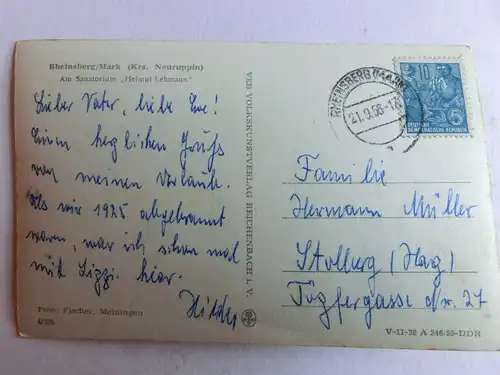 Rheinsberg/Mark (Krs. Neuruppin)
Am Sanatorium „Helmut Lehmann"
Lieber Vater, liebe Eve!
Einen herzlichen Gruß
von meinem Urlaub.
Als wir 1925 abgebrannt
waren, war ich schon mal
mit Lizzi hier.
Foto: Fischer, Meiningen
VEB VOLKSKUNSTVERLAG REICHENBACH I. V.
RHEINSBERG (MARK)
21.9.56-17
10
DEUTSCHE
DEMOKRATISCHE REPUBLIK
Familie
Hermann Müller
Stolberg (Harz)
Töpfergasse Nr. 27
V-11-28 A 246/55-DDR